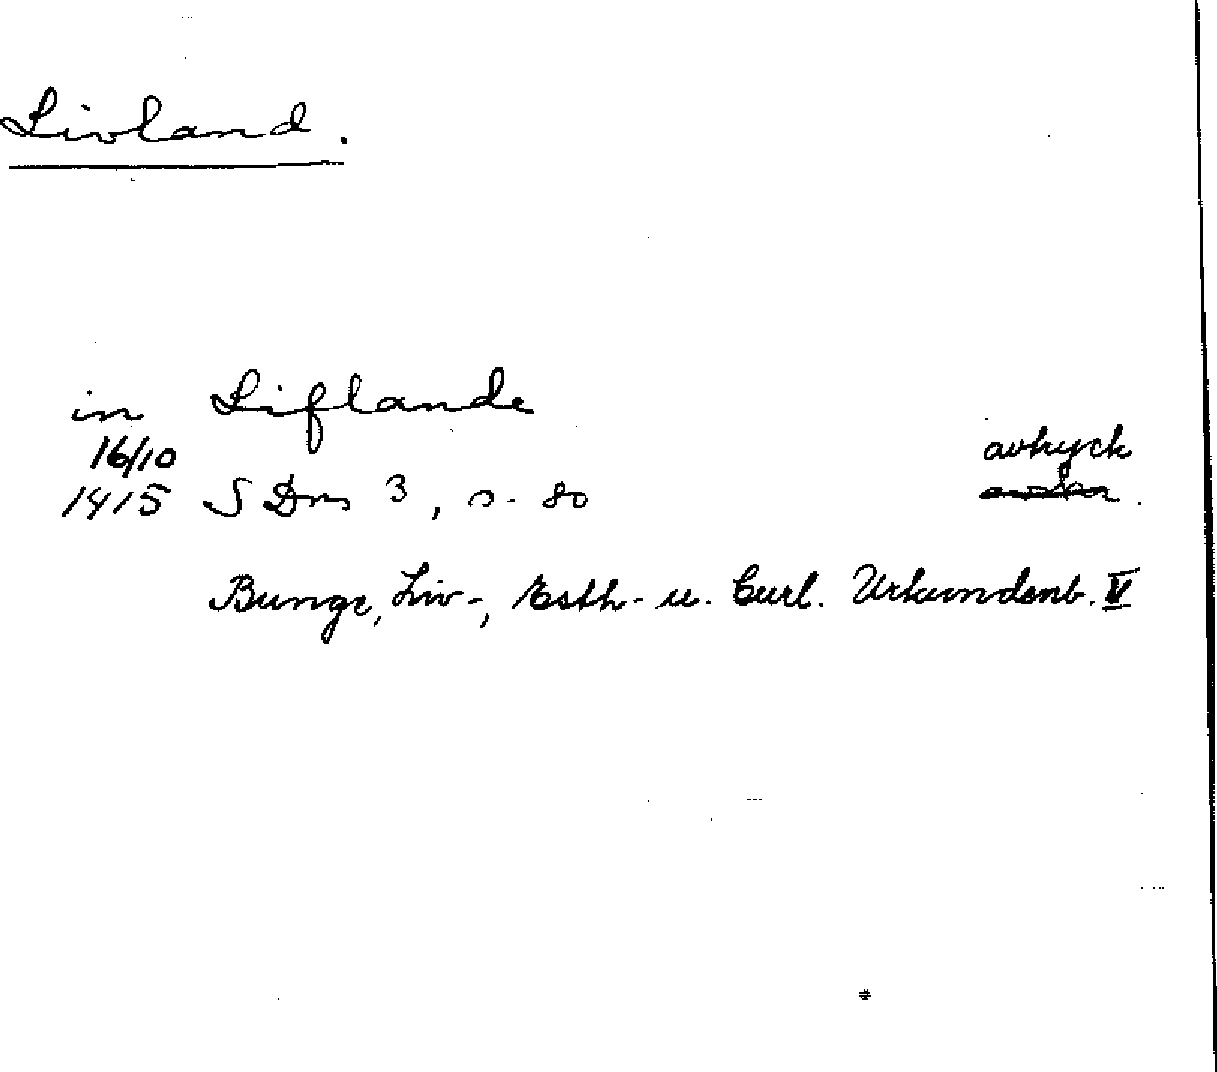 Livland.
in Liflande
16/10 avtryck
1415 S Dns 3, s. 80
Bunge, Liv-, Esth- u. Curl. Urkundenb. V